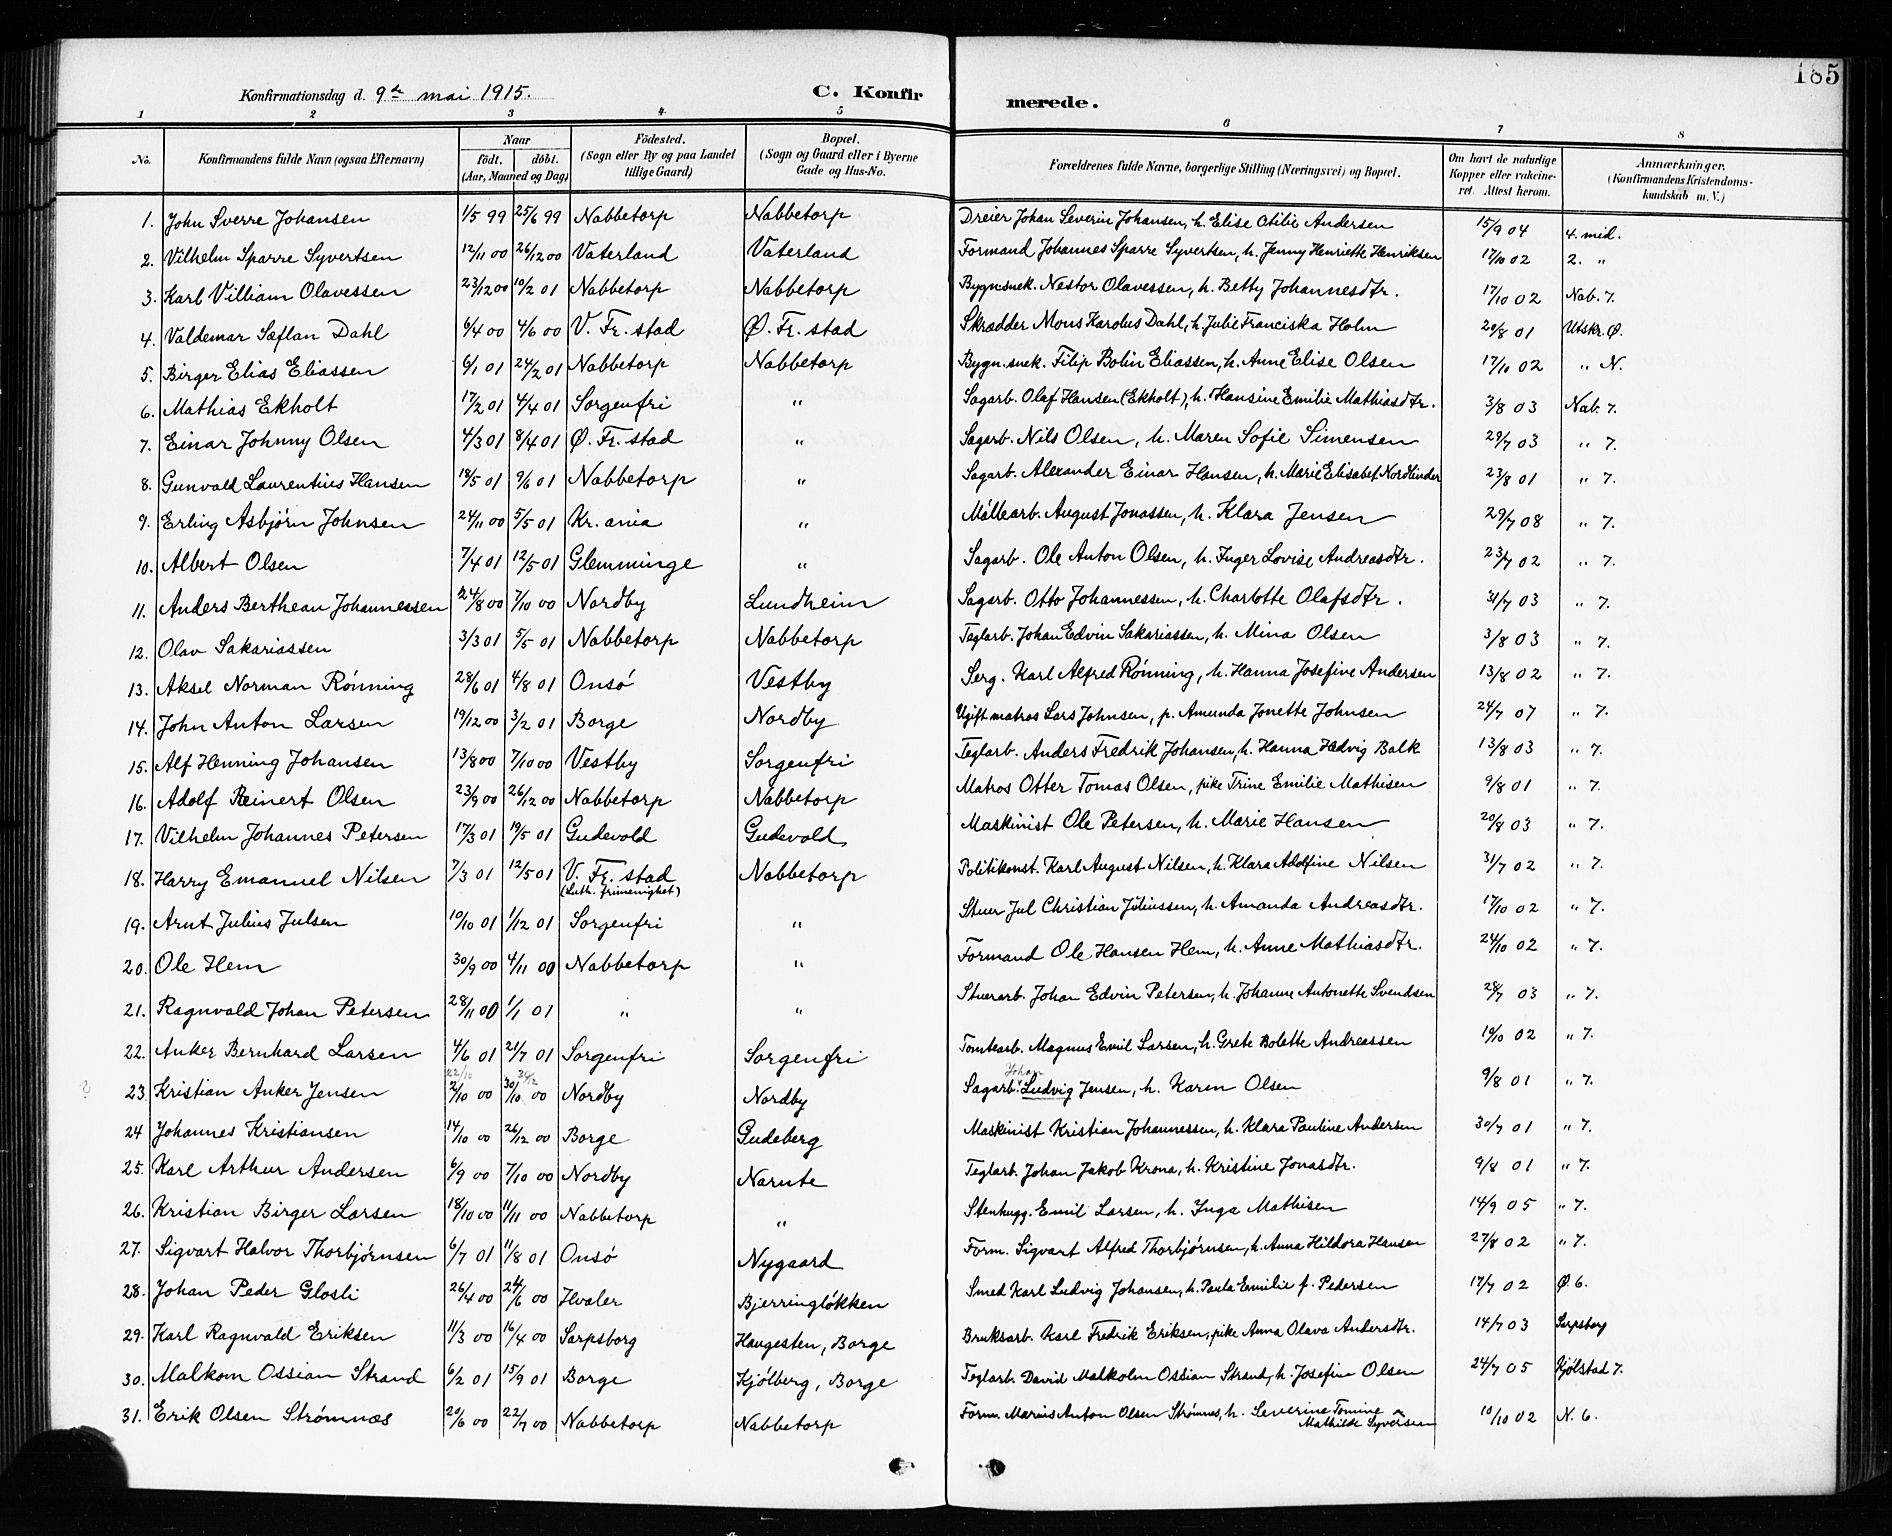 185
Konfirmationsdag d. 9de mai 1915. C. Konfirmerede.
1 2 3 4 5 6 7 8
No. Konfirmandens fulde Navn (ogsaa Efternavn) Naar født. døbt. (Aar, Maaned og Dag) Födested. (Sogn eller By og paa Landet tillige Gaard) Bopæl. (Sogn og Gaard eller i Byerne Gade og Hus-No. Forældrenes fulde Navne, borgerlige Stilling (Næringsvei) og Bopæl. Om havt de naturlige Kopper eller vakcineret. Attest herom. Anmærkninger. (Konfirmandens Kristendomskundskab m. V.)
1. John Sverre Johansen 1/5 99 25/6 99 Nabbetorp Nabbetorp Dreier Johan Severin Johansen, h. Elise Otilie Andersen 15/9 04 4. mid.
2. Vilhelm Sparre Syvertsen 12/11 00 26/12 00 Vaterland Vaterland Formand Johannes Sparre Syvertsen, h. Jenny Henriette Henriksen 17/10 02 2. "
3. Karl Villiam Olavessen 23/12 00 10/2 01 Nabbetorp Nabbetorp Bygn.snek. Nestor Olavessen, h. Betty Johannesdtr. 17/10 02 Nab. 7.
4. Valdemar Sæflan Dahl 6/4 00 4/6 00 V. Fr. stad Ø. Fr. stad Skrædder Mons Karolus Dahl, h. Julie Franciska Holm 20/8 01 Utskr. Ø.
5. Birger Elias Eliassen 6/1 01 24/2 01 Nabbetorp Nabbetorp Bygn. snek. Filip Bolin Eliassen, h. Anne Elise Olsen 17/10 02 " N.
6. Mathias Ekholt 17/2 01 4/4 01 Sorgenfri " Sagarb. Olaf Hansen (Ekholt), h. Hansine Emilie Mathiasdtr. 3/8 03 Nab. 7.
7. Einar Johnny Olsen 4/3 01 8/4 01 Ø. Fr. stad " Sagarb. Nils Olsen, h. Maren Sofie Simensen 29/7 03 " 7.
8. Gunvald Laurentius Hansen 18/5 01 9/6 01 Nabbetorp " Sagarb. Alexander Einar Hansen, h. Marie Elisabet Nordlinder 23/8 01 " 7.
9. Erling Asbjørn Johnsen 24/11 00 5/5 01 Kr. ania " Møllearb. August Jonassen, h. Klara Jensen 29/7 08 " 7.
10. Albert Olsen 7/4 01 12/5 01 Glemminge " Sagarb. Ole Anton Olsen, h. Inger Lovise Andreasdtr. 23/7 02 " 7.
11. Anders Berthean Johannessen 24/8 00 7/10 00 Nordby Lundheim Sagarb. Otto Johannessen, h. Charlotte Olafsdtr. 31/7 03 " 7.
12. Olav Sakariassen 3/3 01 5/5 01 Nabbetorp Nabbetorp Teglarb. Johan Edvin Sakariassen, h. Mina Olsen 3/8 03 " 7.
13. Aksel Norman Rønning 28/6 01 4/8 01 Onsø Vestby Serg. Karl Alfred Rønning, h. Hanna Josefine Andersen 13/8 02 " 7.
14. John Anton Larsen 19/12 00 3/2 01 Borge Nordby Ugift matros Lars Johnsen, p. Amunda Jonette Johnsen 24/7 07 " 7.
15. Alf Henning Johansen 13/8 00 7/10 00 Vestby Sorgenfri Teglarb. Anders Fredrik Johansen, h. Hanna Hedvig Balk 13/8 03 " 7.
16. Adolf Reinert Olsen 23/9 00 26/12 00 Nabbetorp Nabbetorp Matros Otter Tomas Olsen, pike Trine Emilie Mathisen 9/8 01 " 7.
17. Vilhelm Johannes Petersen 17/3 01 19/5 01 Gudevold Gudevold Maskinist Ole Petersen, h. Marie Hansen 20/8 03 " 7.
18. Harry Emanuel Nilsen 7/3 01 12/5 01 V. Fr. stad (Luth. frimenighet) Nabbetorp Politikonst. Karl August Nilsen, h. Klara Adolfine Nilsen 31/7 02 " 7.
19. Arnt Julius Julsen 10/10 01 1/12 01 Sorgenfri " Stuer Jul Christian Juliussen, h. Amanda Andreasdtr. 17/10 02 " 7.
20. Ole Hem 30/9 00 4/11 00 Nabbetorp " Formand Ole Hansen Hem, h. Anne Mathiasdtr. 24/10 02 " 7.
21. Ragnvald Johan Petersen 28/11 00 1/1 01 " " Stuerarb. Johan Edvin Petersen, h. Johanne Antonette Svendsen 28/7 03 " 7.
22. Anker Bernhard Larsen 4/6 01 21/7 01 Sorgenfri Sorgenfri Tomtearb. Magnus Emil Larsen, h. Grete Bolette Andreassen 19/10 02 " 7.
23. Kristian Anker Jensen 2/10 00 30/10 00 Nordby Nordby Sagarb. Johan Ludvig Jensen, h. Karen Olsen 9/8 01 " 7.
24 Johannes Kristiansen 14/10 00 26/12 00 Borge Gudeberg Maskinist Kristian Johannessen, h. Klara Pauline Andersen 30/7 01 " 7.
25. Karl Arthur Andersen 6/9 00 7/10 00 Nordby Narute Teglarb. Johan Jakob Krona, h. Kristine Jonasdtr. 9/8 01 " 7.
26. Kristian Birger Larsen 18/10 00 11/11 00 Nabbetorp " Stenhugg. Emil Larsen, h. Inga Mathisen 14/9 05 " 7.
27. Sigvart Halvor Thorbjørnsen 6/7 01 11/8 01 Onsø Nygaard Form. Sigvart Alfred Thorbjørnsen, h. Anna Hildora Hansen 27/8 02 " 7.
28. Johan Peder Glosli 26/4 00 24/6 00 Hvaler Bjerringløkken Smed Karl Ludvig Johansen, h. Paula Emilie f. Pedersen 17/7 02 Ø. 6.
29. Karl Ragnvald Eriksen 11/3 00 16/4 00 Sarpsborg Haugesten, Borge Bruksarb. Karl Fredrik Eriksen, pike Anna Olava Andersdtr. 14/7 03 Sarpsborg
30. Malkom Ossian Strand 6/2 01 15/9 01 Borge Kjølberg, Borge Teglarb. David Malkolm Ossian Strand, h. Josefine Olsen 24/7 05 Kjølstad 7.
31. Erik Olsen Strømnæs 20/6 00 22/7 00 Nabbetorp Nabbetorp Form. Marius Anton Olsen Strømnes, h. Severine Tomine Mathilde Syversen 10/10 02 N. 6.